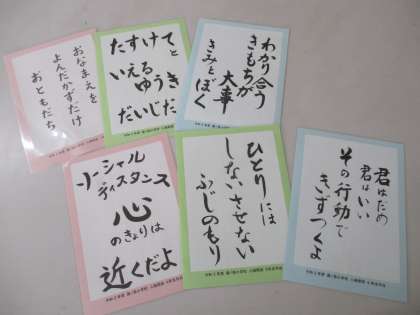 おなまえを
よんだかずだけ
おともだち
たすけてと
いえるゆうき
だいじだ
わかり合う
きもちが
大事
きみとぼく
ソーシャル
ディスタンス
心
のきょりは
近くだよ
ひとりには
しないさせない
ふじのもり
君はだめ
君はいい
その行動で
きずつくよ